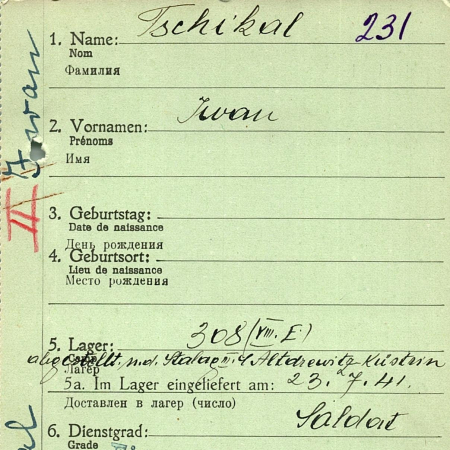 Tschikal 231
1. Name:
Nom
Фамилия
Iwan
2. Vornamen:
Prénoms
Имя
3. Geburtstag:
Date de naissance
День рождения
4. Geburtsort:
Lieu de naissance
Место рождения
308 (VIII. E)
5. Lager:
Camp
abgestellt n.d. Stalag III C Altdrewitz-Küstrin
Лагерь
5a. Im Lager eingeliefert am: 23.7.41.
Доставлен в лагер (число)
Saldat
6. Dienstgrad:
Grade
Iwan
II